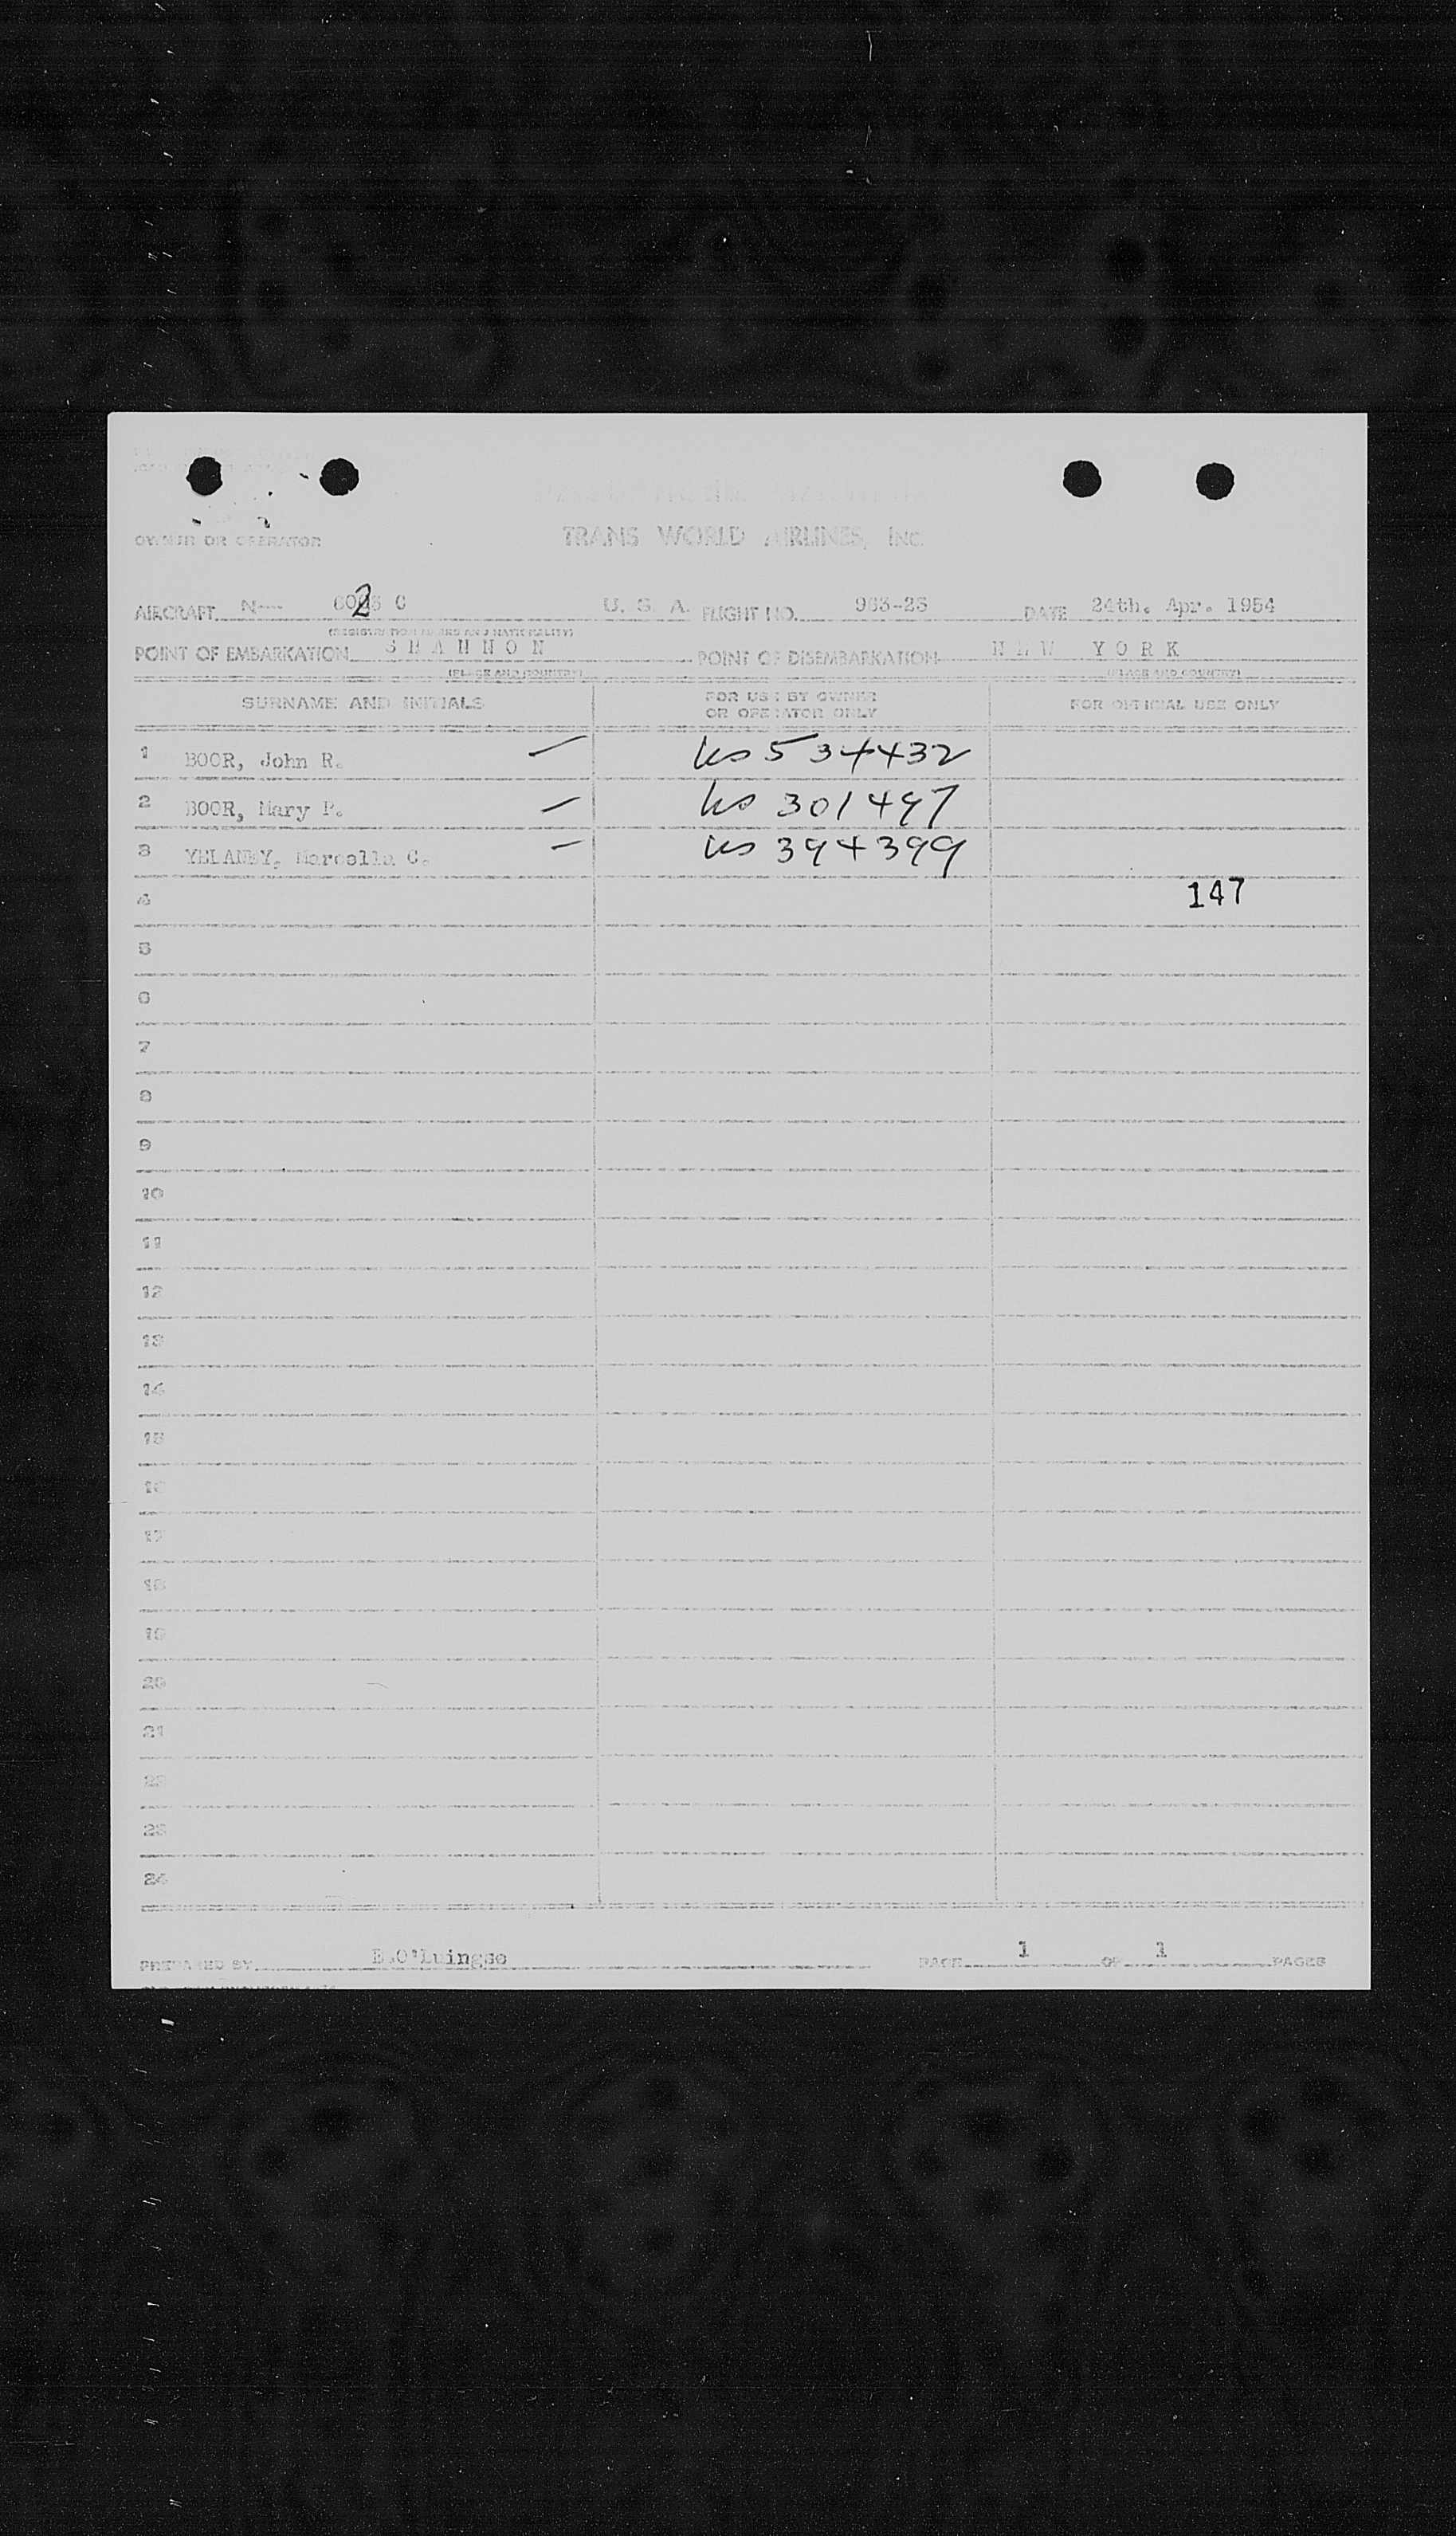 OWNER OR OPERATOR
TRANS WORLD AIRLINES, INC.
AIRCRAFT N---- C U. S. A. FLIGHT NO. 963-25 DATE 24th. Apr. 1954
(REGISTRATION MARKS AND NATIONALITY)
POINT OF EMBARKATION S H A N N O N POINT OF DISEMBARKATION N E W Y O R K
(PLACE AND COUNTRY) (PLACE AND COUNTRY)
SURNAME AND INITIALS FOR USE BY OWNER OR OPERATOR ONLY FOR OFFICIAL USE ONLY
1 BOOR, John R. — us 534432
2 BOOR, Mary P. — us 301497
3 Marcella C. — us 394399
4 147
5
6
7
8
9
10
11
12
13
14
15
16
17
18
19
20
21
22
23
24
PREPARED BY PAGE 1 OF 1 PAGES